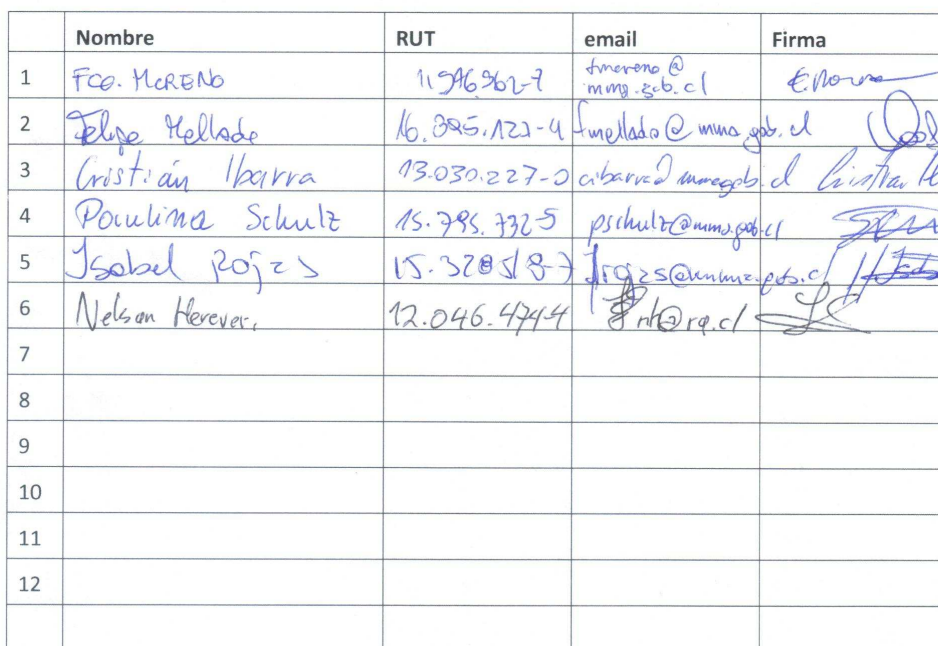 Nombre RUT email Firma
1 FCO. MORENO 11.946.962-7 fmoreno@
mma.gob.cl
2 Felipe Mellado fmellado@mma.gob.cl
3 Cristián Ibarra 13.030.227-0 cibarra@mma.gob.cl Cristian
4 Paulina Schulz 15.795.732-5 pschulz@mma.gob.cl
5 Isabel Rojas irojas@mma.gob.cl
6 Nelson 12.046.474-4
7
8
9
10
11
12